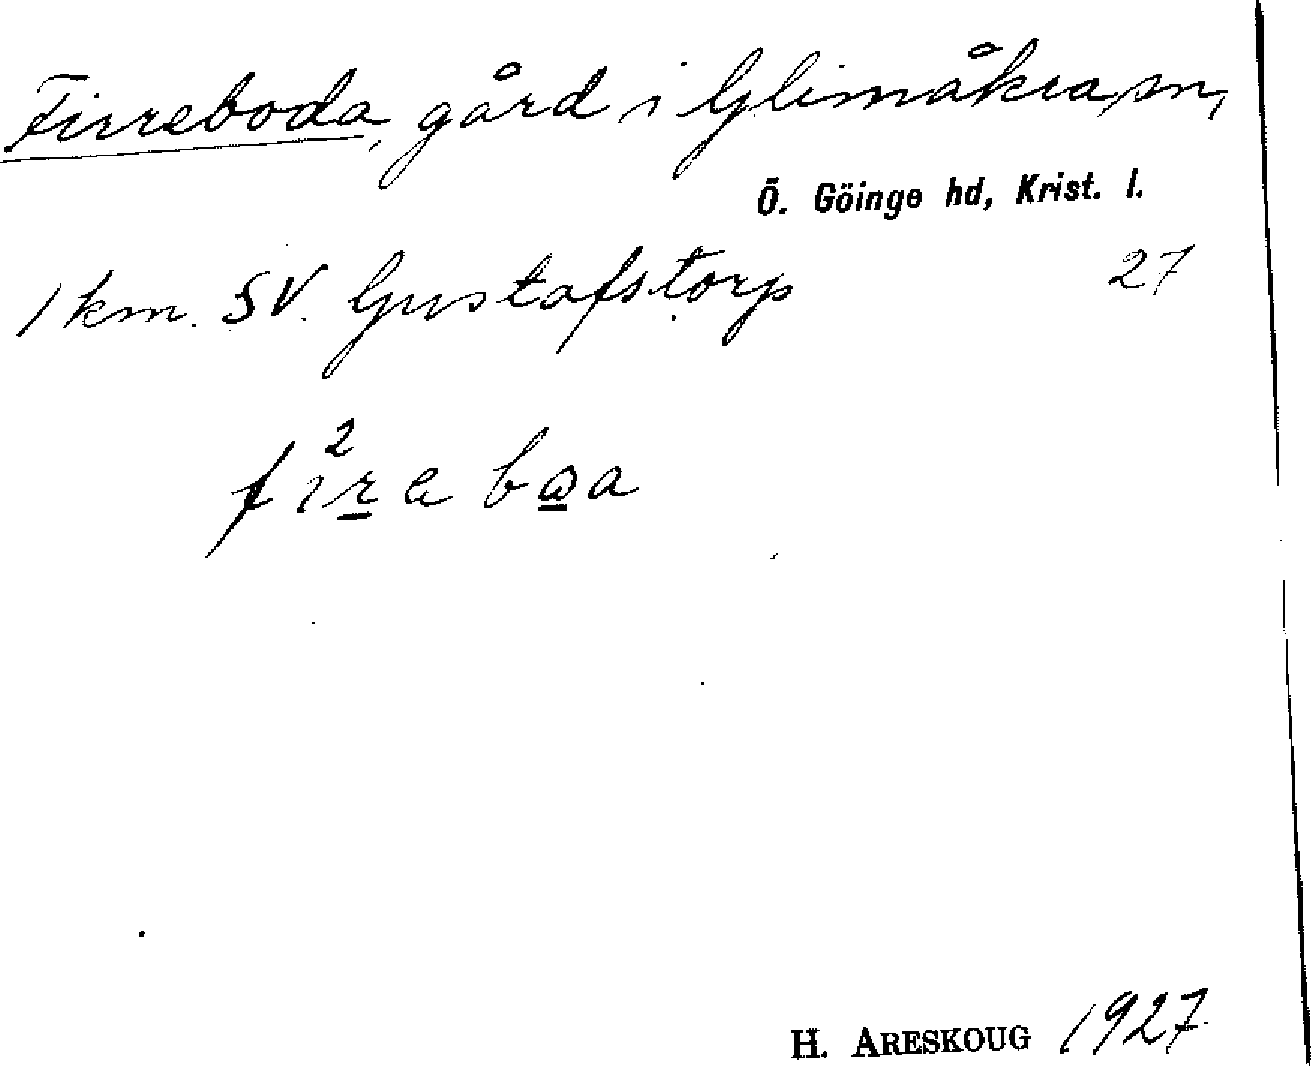 Firreboda, gård i Glimåkra sn,
Ö. Göinge hd, Krist. l.
1 km. SV. Gustafstorp 27
fi²re bωa
H. ARESKOUG 1927